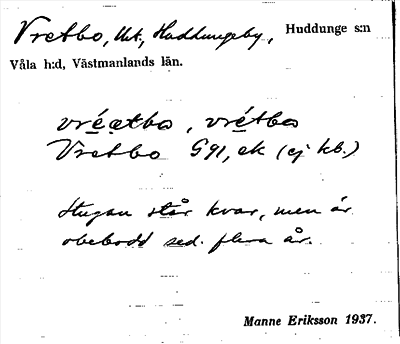 Vretbo, lht, Huddungeby, Huddunge s:n
Våla h:d, Västmanlands län.
vré̱ɑtbo, vré̱tbo
Vretbo G91, ek (ej kb.)
Stugan står kvar, men är
obebodd sed. flera år.
Manne Eriksson 1937.